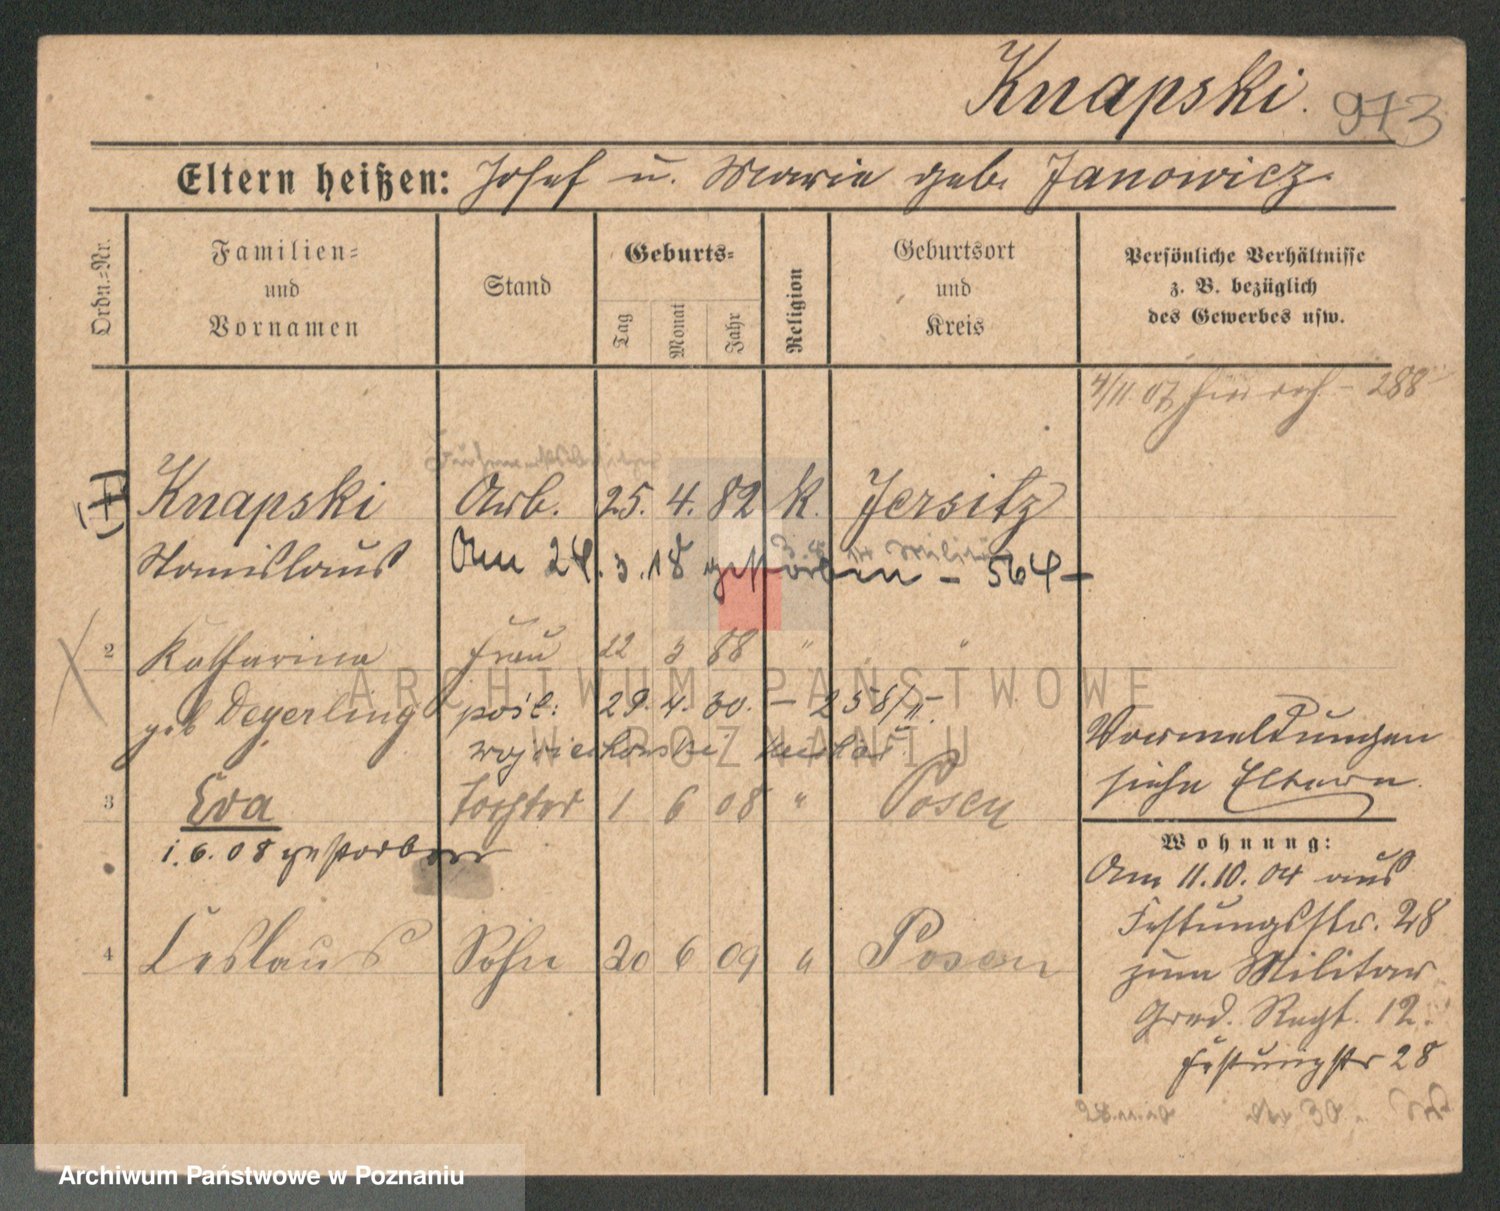 Knapski. 973
Eltern heißen: Josef u. Marie geb. Janowicz
Ordn.=Nr.
Familien=
und
Vornamen
Stand
Geburts=
Tag
Monat
Jahr
Religion
Geburtsort
und
Kreis
Persönliche Verhältnisse
z. B. bezüglich
des Gewerbes usw.
4/11 07 - 288
Knapski Arb. 25. 4. 82 K. Jersitz
Stanislaus
Am 24.3.18 gestorben - 564 -
2 Katharina Frau 22 3 88 " "
geb Deyerling 29.4.30. - 258/II.
3 Eva Tochter 1 6 08 " Posen
1.6.08 gestorben
4 Ceslaus Sohn 20 6 09 " Posen
Vormeldungen
siehe Eltern.
Wohnung:
Am 11.10.04 aus
Festungsstr. 28
zum Militär
Gred. Regt. 12.
Festungstr 28
ARCHIWUM PAŃSTWOWE
W POZNANIU
Archiwum Państwowe w Poznaniu